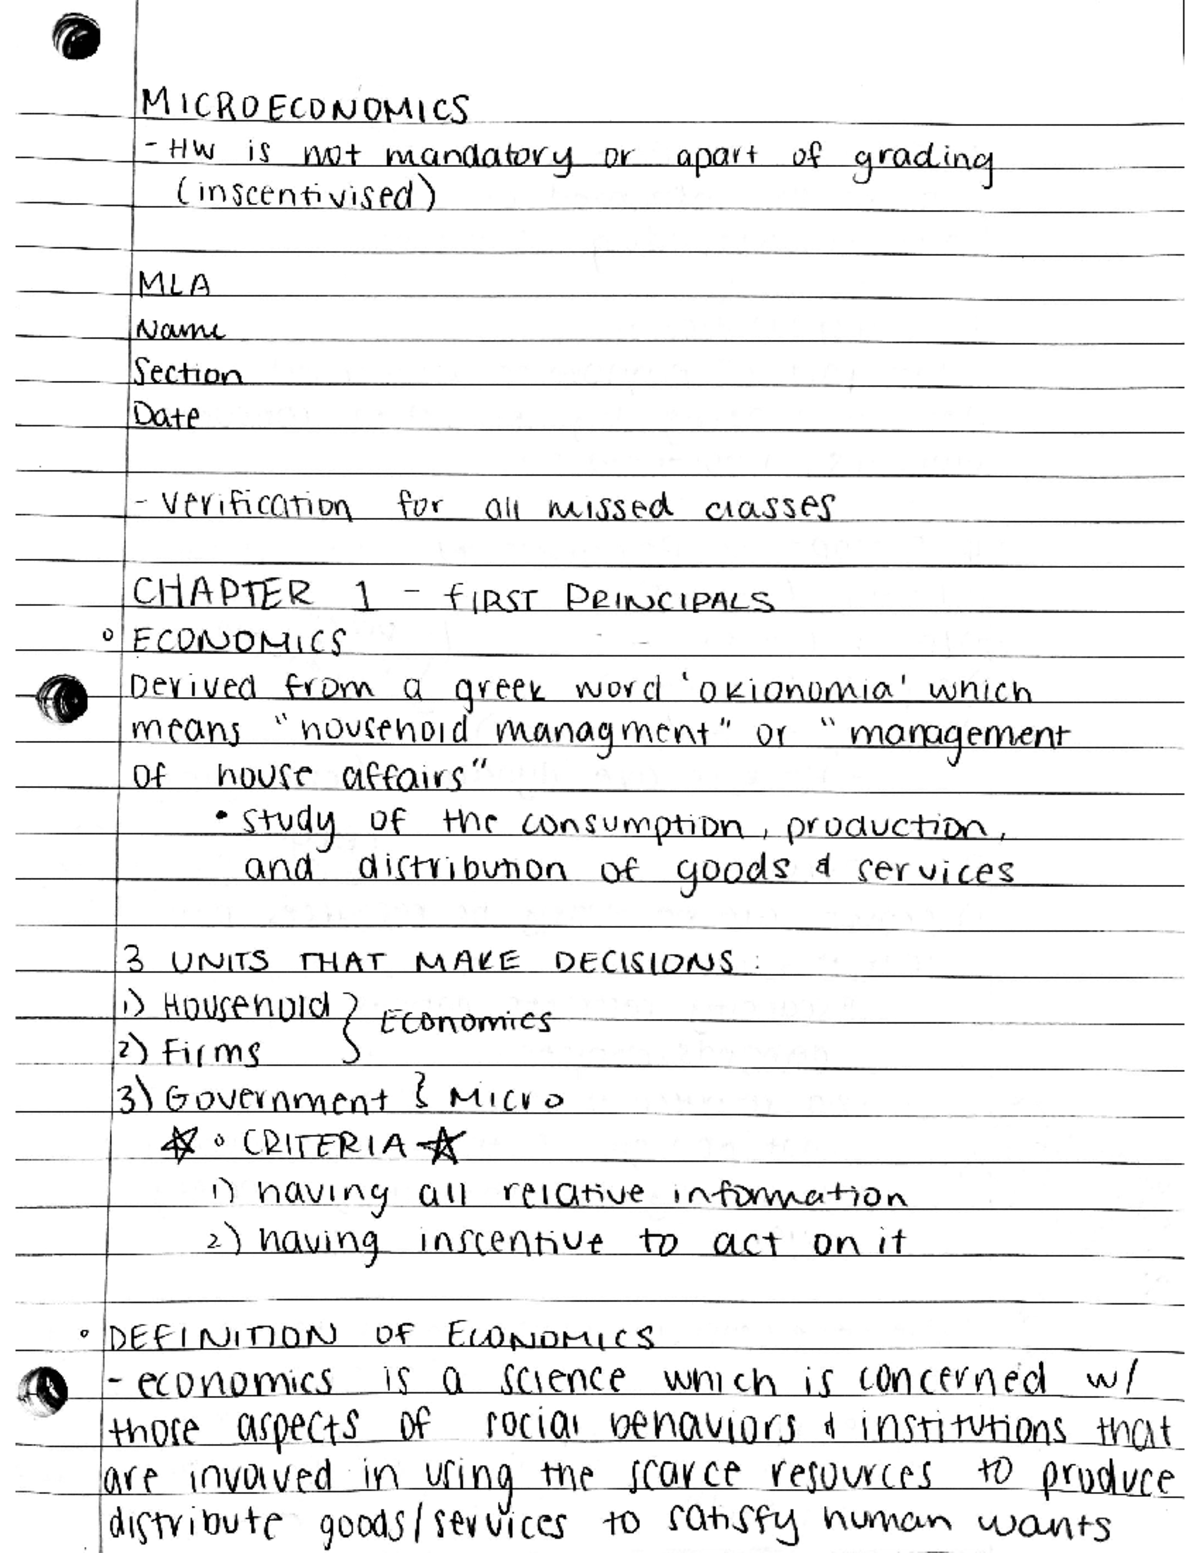 MICROECONOMICS
- HW is not mandatory or apart of grading
(inscentivised)
MLA
Name
Section
Date
- verification for all missed classes
CHAPTER 1 - FIRST PRINCIPALS
° ECONOMICS
Derived from a greek word 'okionomia' which
means "household managment" or "management
of house affairs"
• study of the consumption, production,
and distribution of goods & services
3 UNITS THAT MAKE DECISIONS:
1) Household } Economics
2) Firms
3) Government } Micro
☆ ° CRITERIA ☆
1) having all relative information
2) having inscentive to act on it
° DEFINITION OF ECONOMICS
- economics is a science which is concerned w/
those aspects of social behaviors & institutions that
are involved in using the scarce resources to produce
distribute goods/services to satisfy human wants